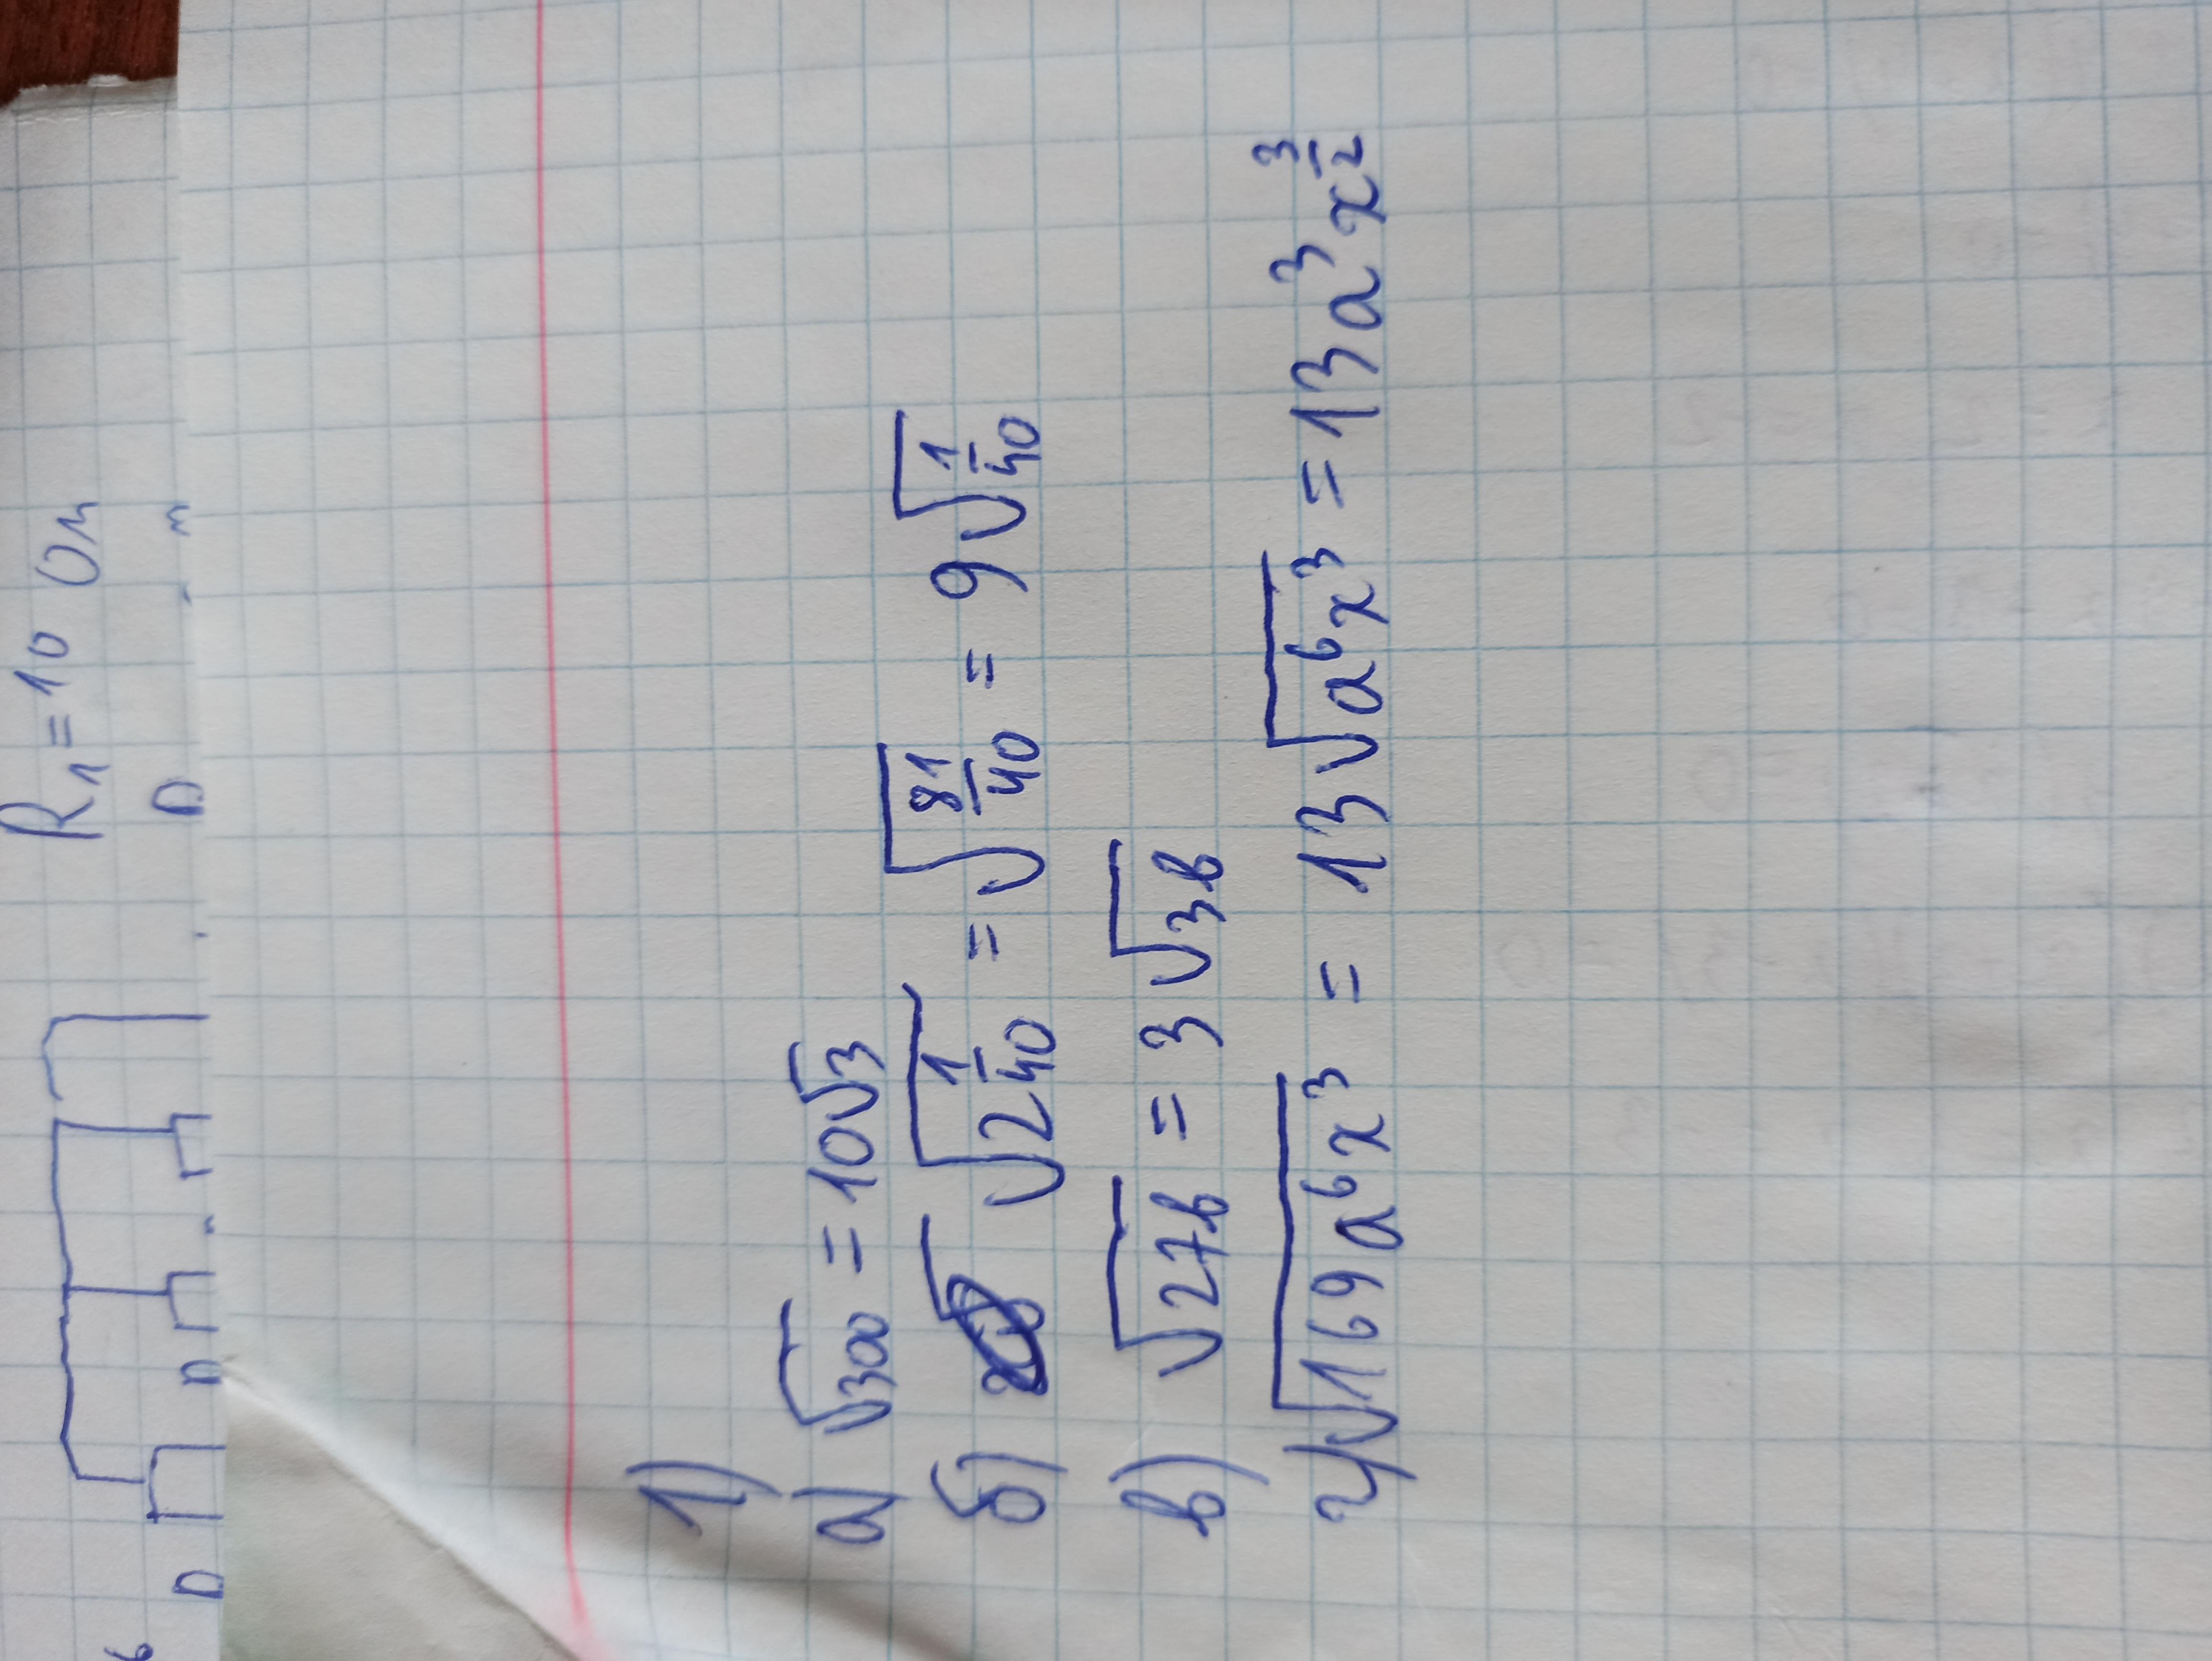 R₁ = 10 Ом
1)
а) √300 = 10√3
б) √2 1/40 = √81/40 = 9√1/40
в) √27в = 3√3в
г) √169a⁶x³ = 13√a⁶x³ = 13a³x^3/2